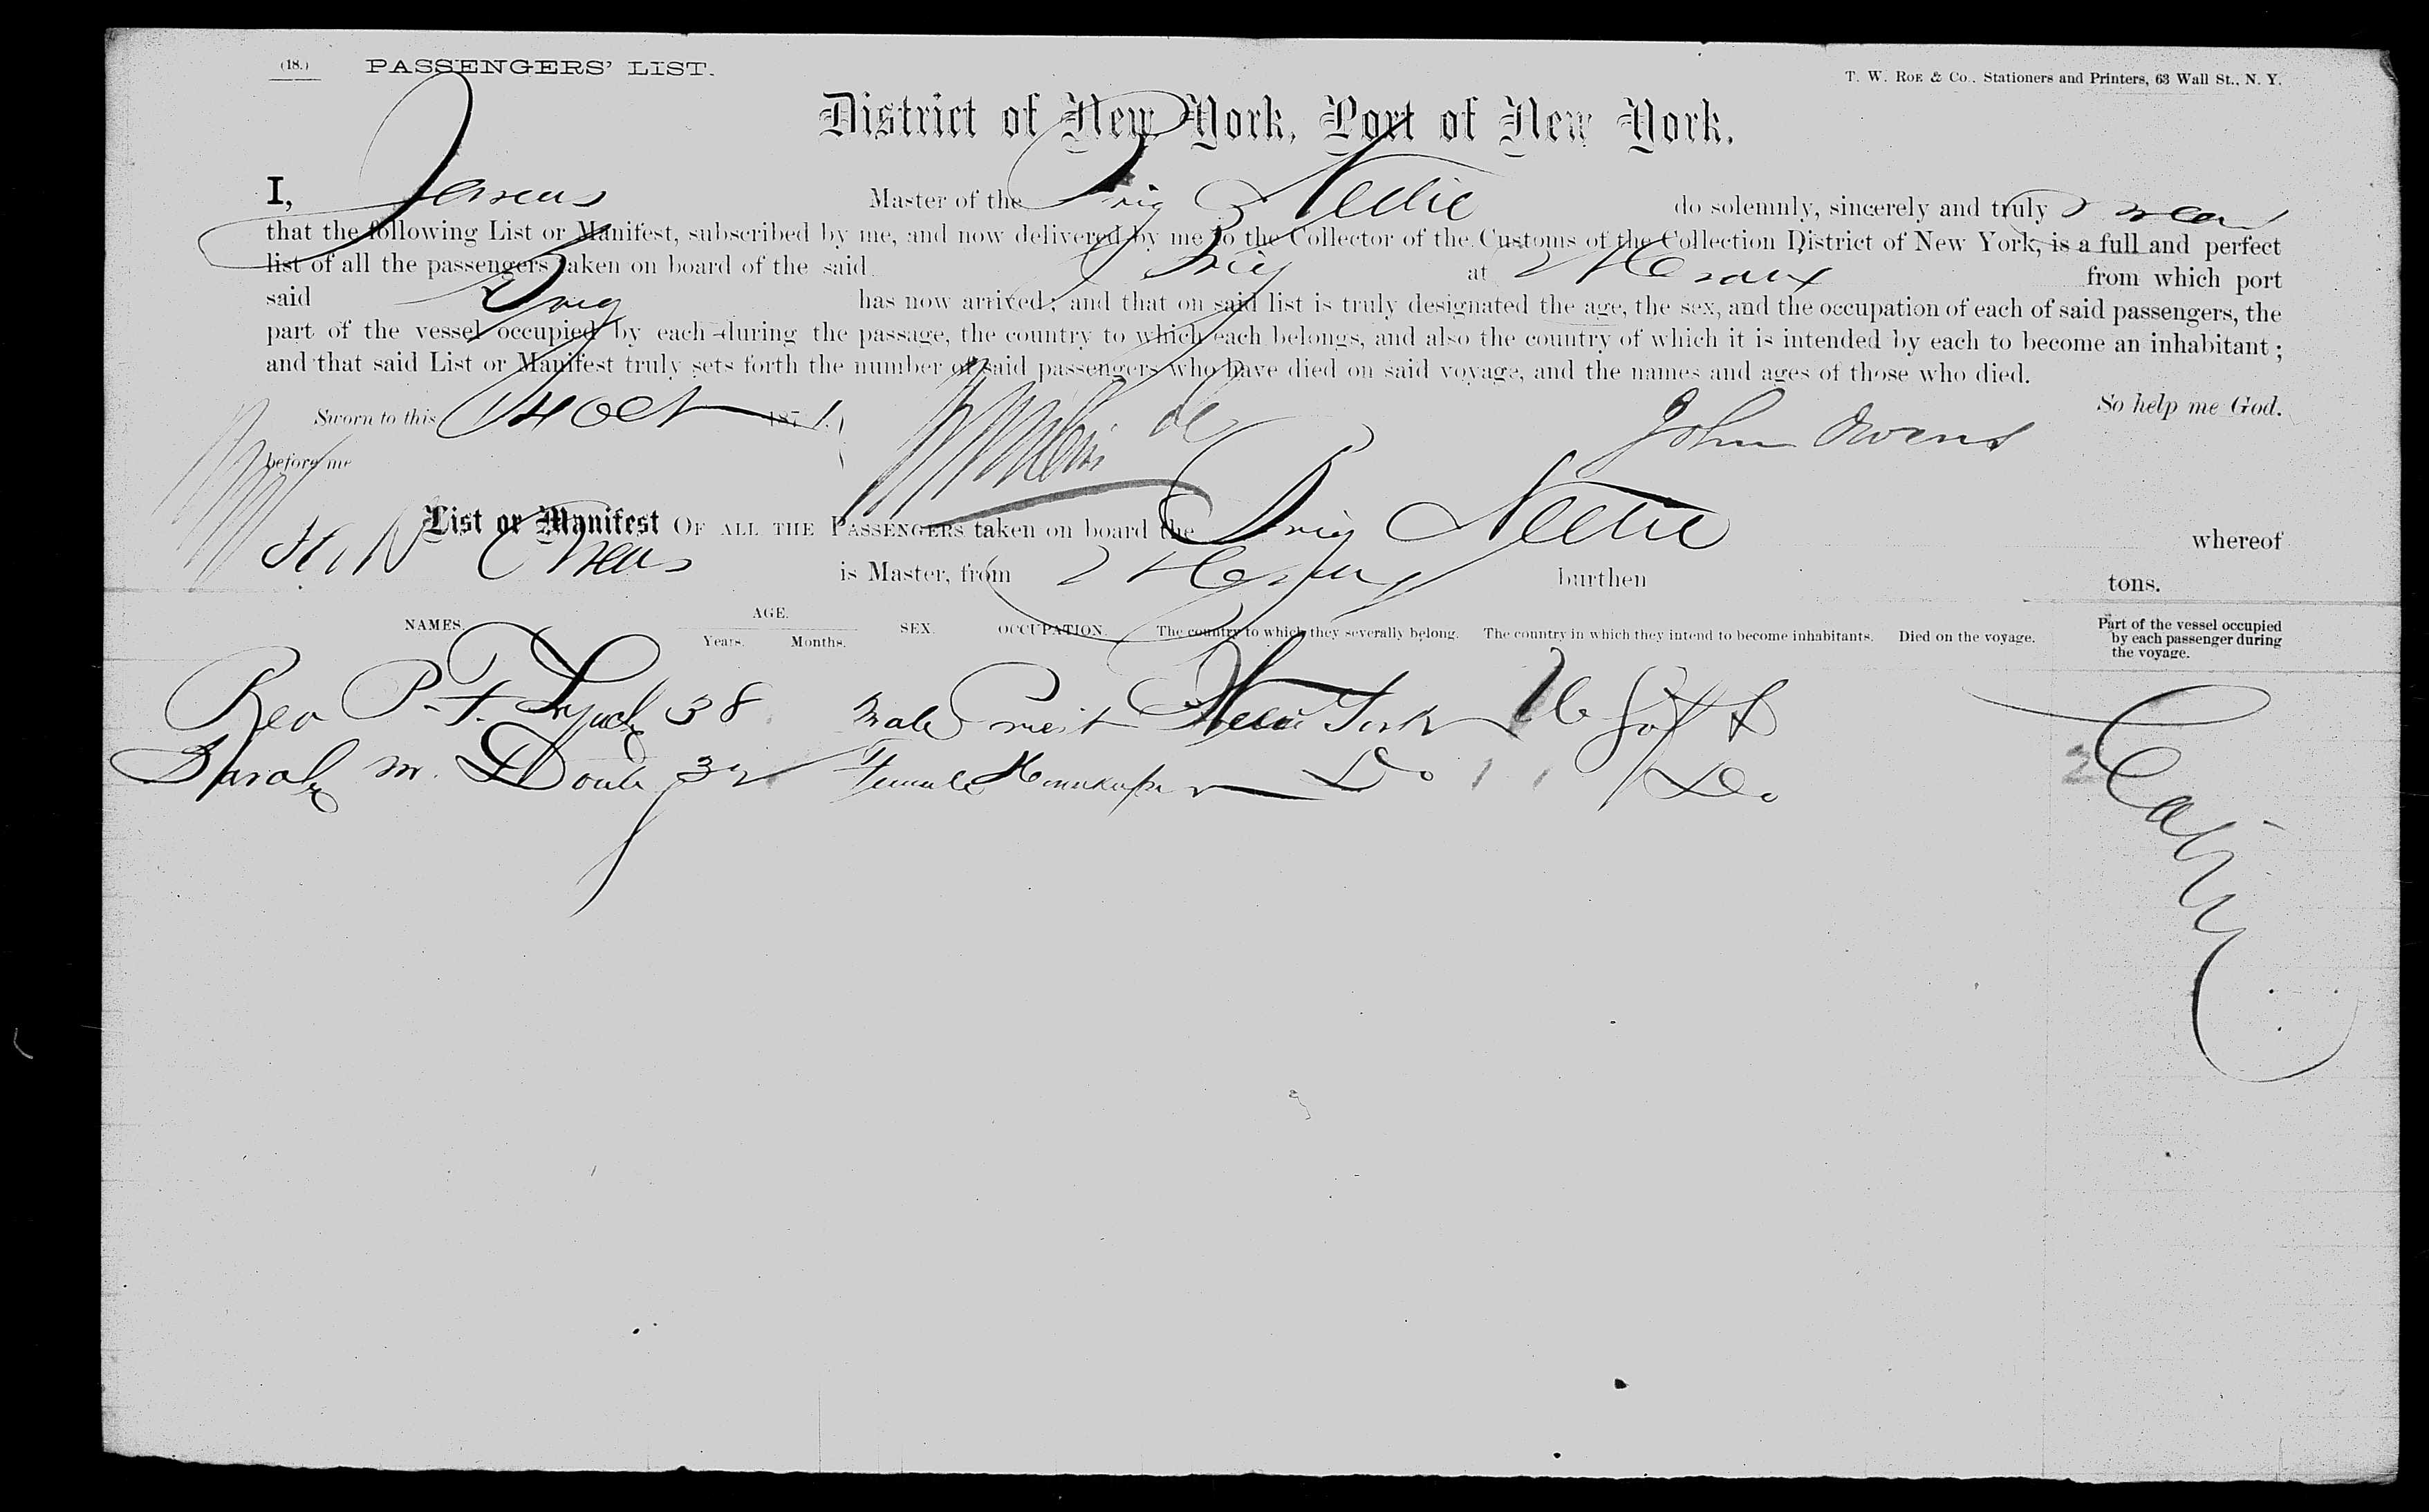 (18.) PASSENGERS' LIST.
T. W. ROE & Co., Stationers and Printers, 63 Wall St., N. Y.
District of New York, Port of New York.
I, Master of the Brig Nellie do solemnly, sincerely and truly swear
that the following List or Manifest, subscribed by me, and now delivered by me to the Collector of the Customs of the Collection District of New York, is a full and perfect
list of all the passengers taken on board of the said Brig at from which port
said Brig has now arrived; and that on said list is truly designated the age, the sex, and the occupation of each of said passengers, the
part of the vessel occupied by each during the passage, the country to which each belongs, and also the country of which it is intended by each to become an inhabitant;
and that said List or Manifest truly sets forth the number of said passengers who have died on said voyage, and the names and ages of those who died.
So help me God.
Sworn to this 14 Oct 1871
John Owens
before me
List or Manifest OF ALL THE PASSENGERS taken on board the Brig Nellie whereof
is Master, from burthen tons.
NAMES. AGE. Years. Months. SEX. OCCUPATION. The country to which they severally belong. The country in which they intend to become inhabitants. Died on the voyage. Part of the vessel occupied by each passenger during the voyage.
Rev P. F. Lynch 38 Male Priest New York U S of A Cabin
Sarah M. 32 Female Housekeeper Do Do